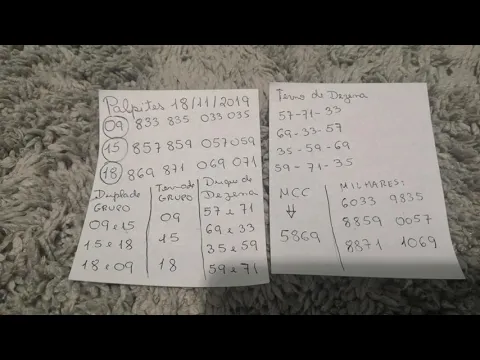 Palpites 18/11/2019
09 833 835 033 035
15 857 859 057 059
18 869 871 069 071
Duplade GRUPO
09 e 15
15 e 18
18 e 09
Terno de GRUPO
09
15
18
Duque de Dezena
57 e 71
69 e 33
35 e 59
59 e 71
Terno de Dezena
57-71-33
69-33-57
35-59-69
59-71-35
MCC
↓
5869
MILHARES:
6033 9835
8859 0057
8871 1069